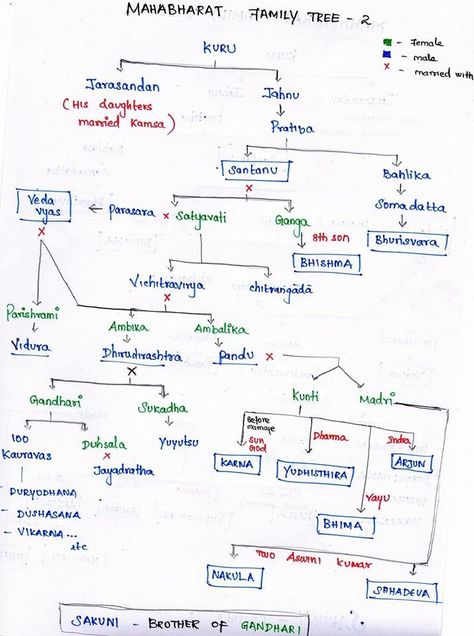 MAHABHARAT FAMILY TREE - 2
- Female
- male
x - married with
KURU
Jarasandan
(His daughters
married Kamsa)
Jahnu
Pratipa
Santanu
Bahlika
x
Veda
vyas
Parasara x Satyavati
Ganga
Somadatta
x
8th son
BHISHMA
Bhurisvara
Vichitravirya
chitrangada
x
Parishrami
Ambika
Ambalika
Vidura
Dhirudirashtra
Pandu x
x
Kunti
Madri
Gandhari
Sukadha
100
Kauravas
Duhsala
x
Jayadratha
Yuyutsu
Before
marriage
SUN
GOD
Dharma
Indra
KARNA
YUDHISTHIRA
ARJUN
Vayu
BHIMA
DURYODHANA
- DUSHASANA
- VIKARNA ...
etc
Two Aswini Kumar
NAKULA
SAHADEVA
SAKUNI - BROTHER OF GANDHARI